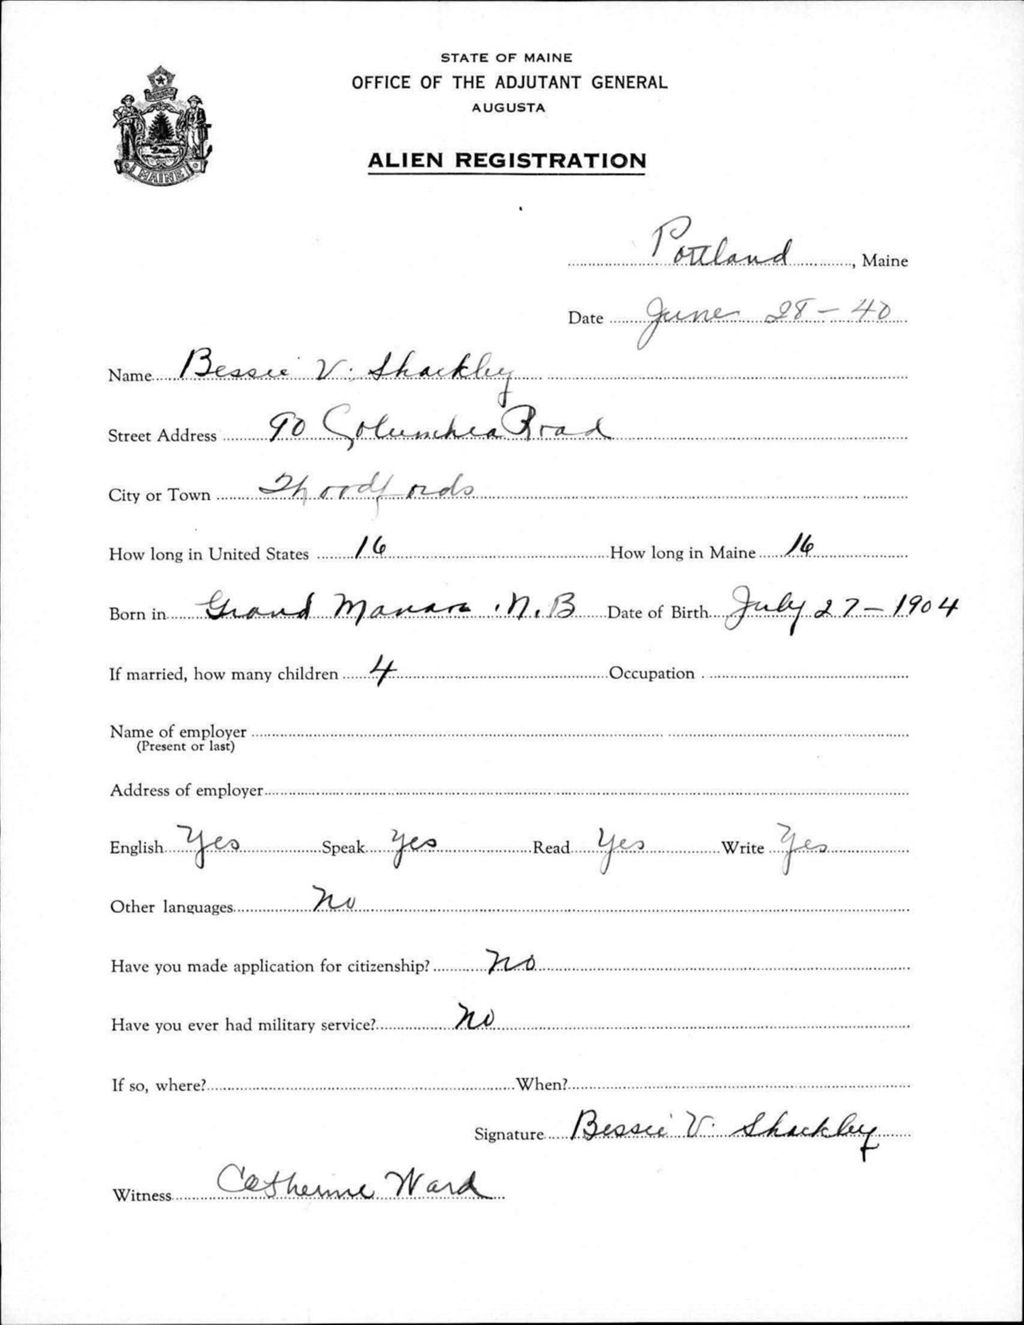 STATE OF MAINE
OFFICE OF THE ADJUTANT GENERAL
AUGUSTA
ALIEN REGISTRATION
MAINE
Portland, Maine
Date June 28 - 40
Name Bessie V. Shackley
Street Address 90 Columbia Road
City or Town Woodfords
How long in United States 16 How long in Maine 16
Born in Grand Manan . N. B Date of Birth July 27 - 1904
If married, how many children 4 Occupation
Name of employer
(Present or last)
Address of employer
English Yes Speak Yes Read Yes Write Yes
Other languages No
Have you made application for citizenship? No
Have you ever had military service? No
If so, where? When?
Signature Bessie V. Shackley
Witness Catherine Ward